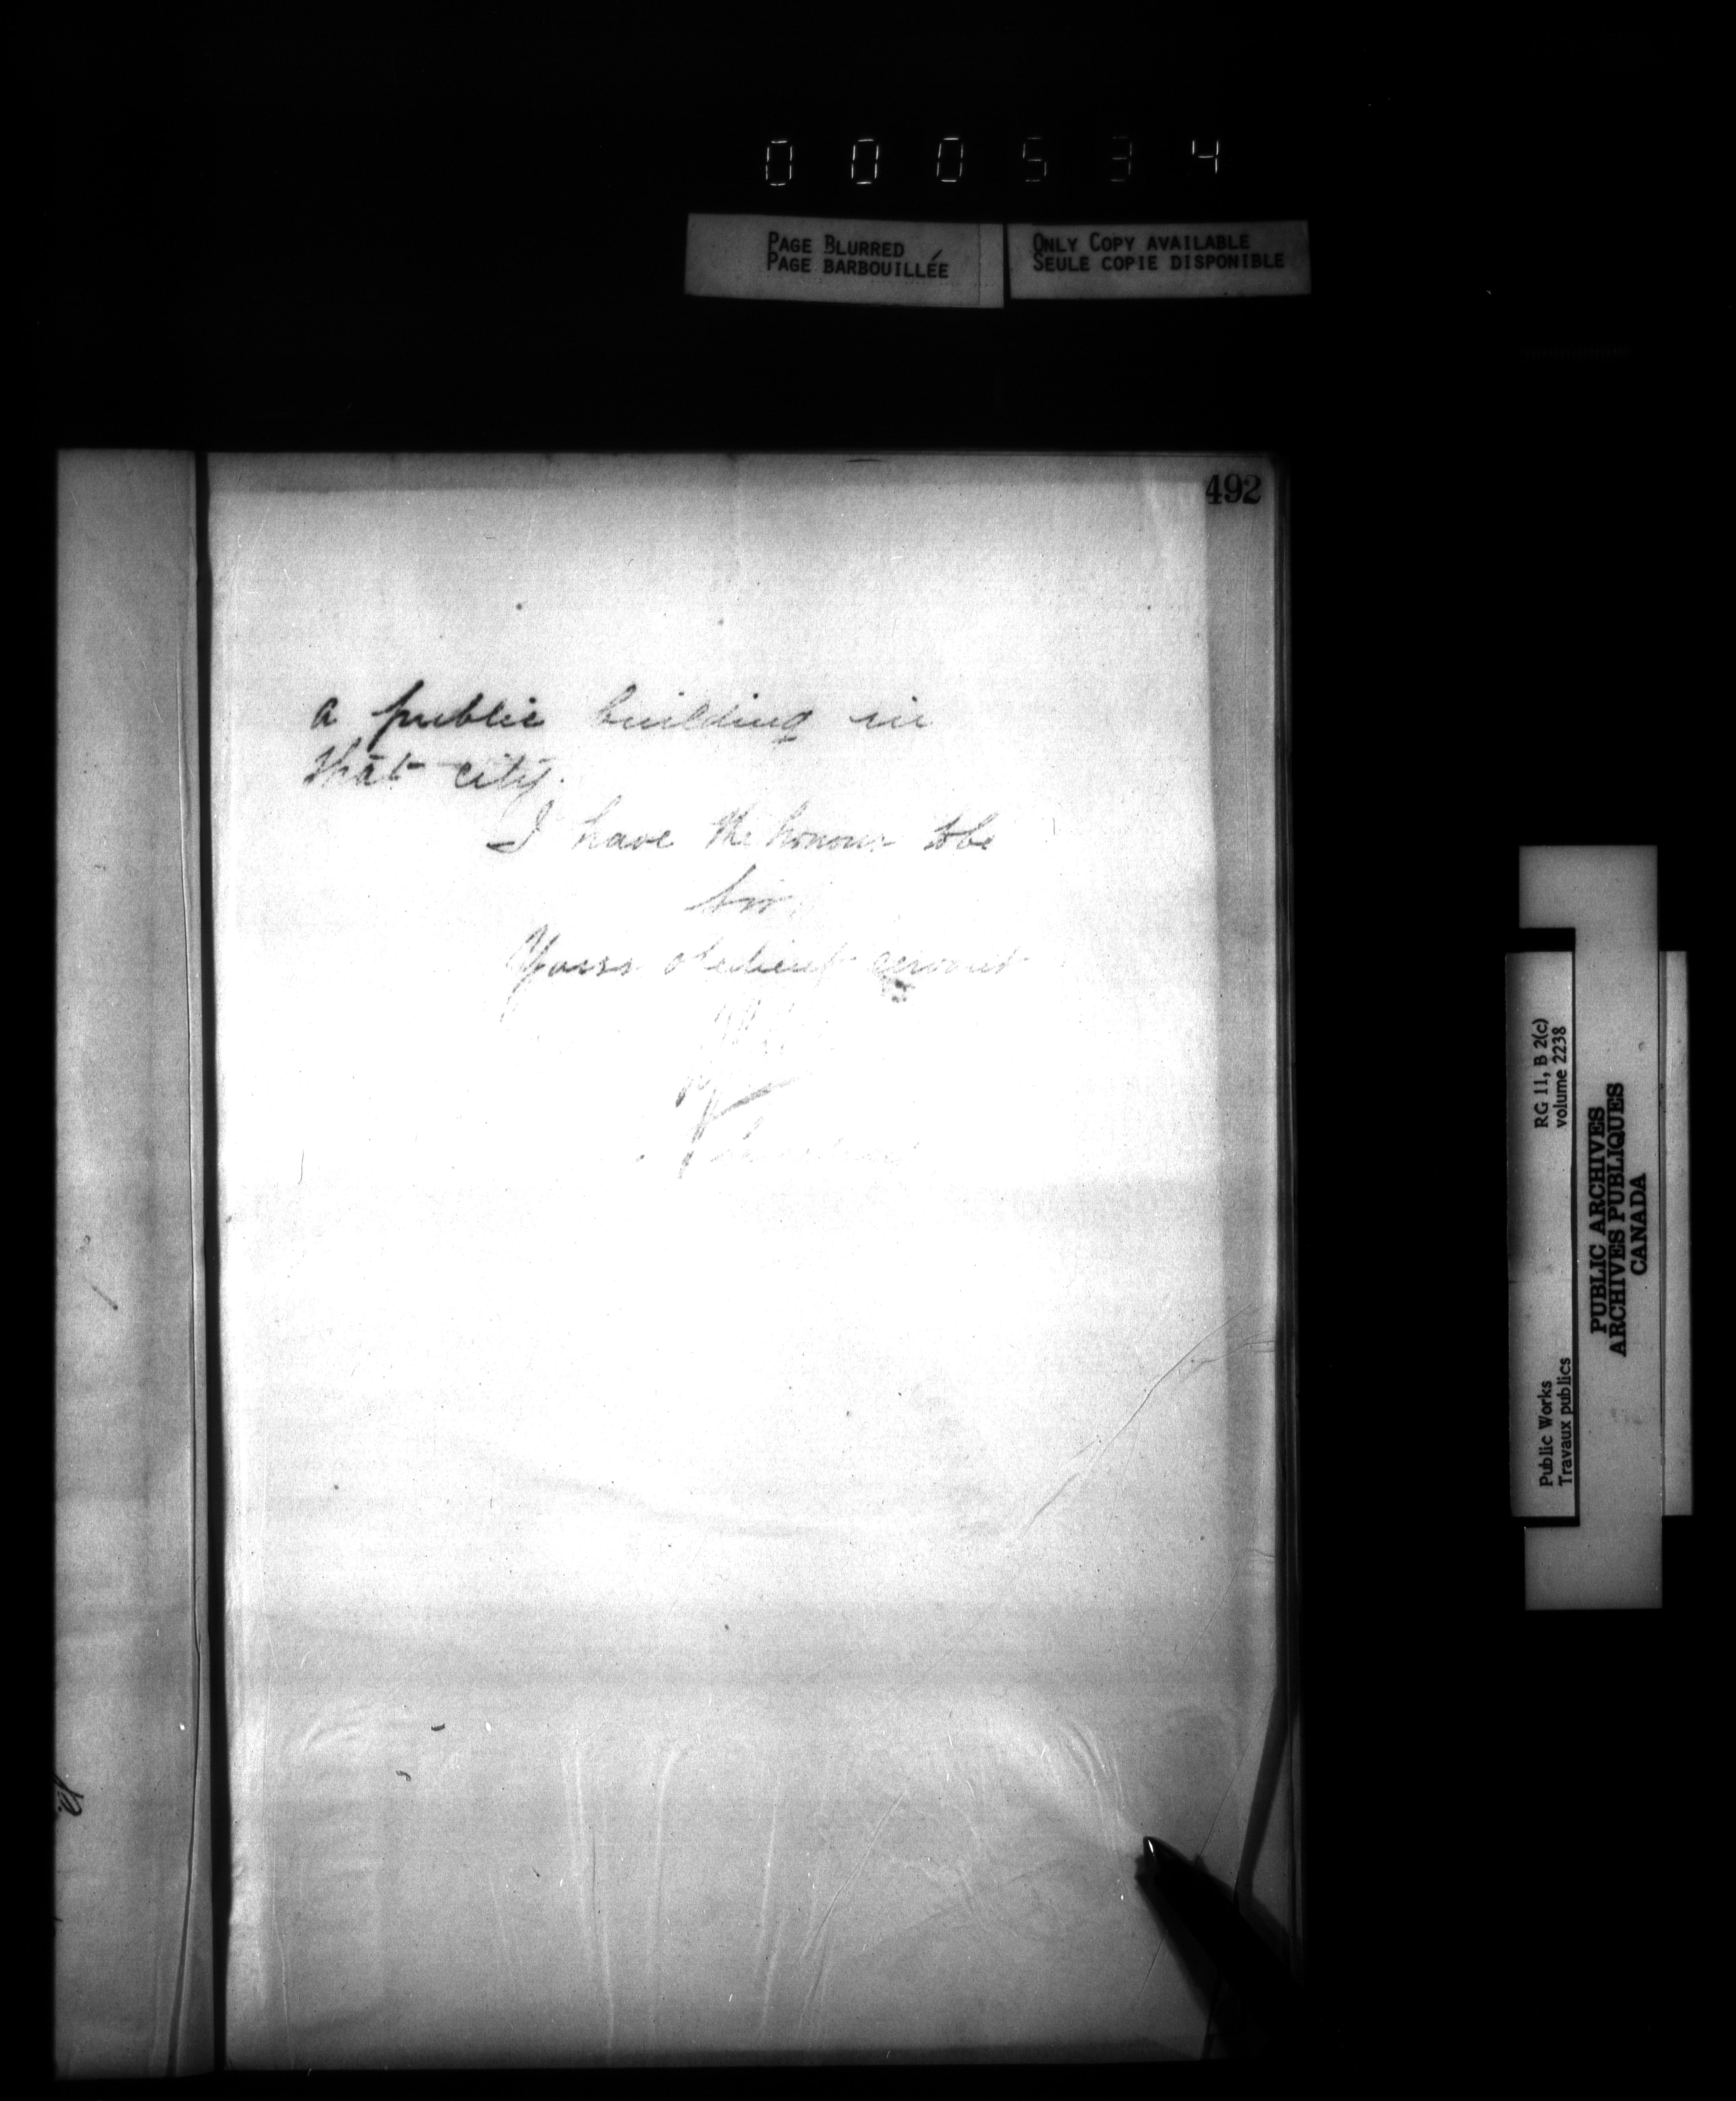 000534
PAGE BLURRED
PAGE BARBOUILLÉE
ONLY COPY AVAILABLE
SEULE COPIE DISPONIBLE
492
a public building in
that city.
I have the honour to be
Sir,
Yours obedient servant
RG 11, B 2(c)
volume 2238
Public Works
Travaux publics
PUBLIC ARCHIVES
ARCHIVES PUBLIQUES
CANADA